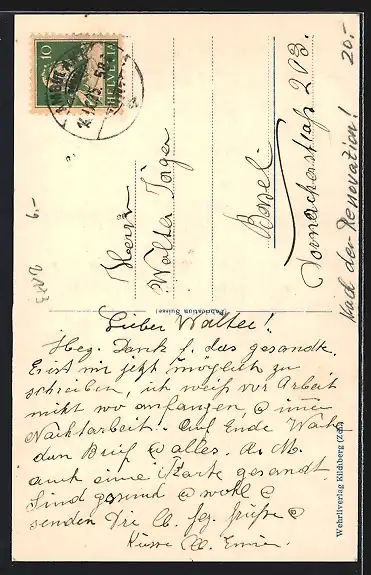 10
HELVETIA
Herrn
Walter Jäger
Basel
Dornacherstraße 203.
Nach der Renovation!
20.-
6.-
Fabrication Suisse
Wehrliverlag Kilchberg (Zch)
Lieber Walter!
Herz. Dank f. das gesandte.
Es ist mir jetzt unmöglich zu
schreiben, ich weiß vor Arbeit
nicht wo anfangen, immer
Nachtarbeit! Auf Ende Woche
dann Brief alles. A. M.
auch eine Karte gesandt.
Sind gesund wohl
senden Dir lb. hz. Grüße
Küsse